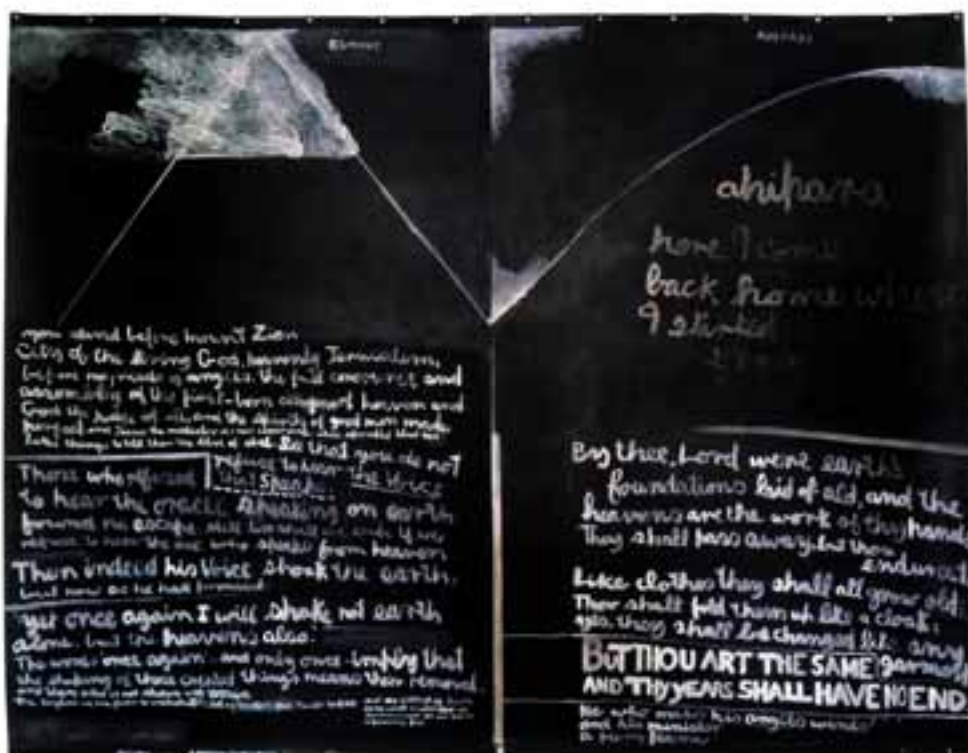 ahipara
here I come
back home where
I started
you stand before mount Zion
City of the living God, heavenly Jerusalem,
before myriads of angels, the full concourse and
assembly of the first-born citizens of heaven and
God the judge of all, and the spirits of good men made
perfect and Jesus the mediator
See that you do not
refuse to hear the Voice
that speaks
Those who refused
to hear the oracle speaking on earth
found no escape, still less shall we escape if we
refuse to hear the one who speaks from heaven
Then indeed his Voice shook the earth,
but now he has promised
yet once again I will shake not earth
alone, but the heavens also.
The words once again - and only once - imply that
the shaking of these created things means their removal
By thee, Lord were earth's
foundations laid of old, and the
heavens are the work of thy hands
They shall pass away but thou
endurest
Like clothes they shall all grow old:
Thou shalt fold them up like a cloak;
yes, they shall be changed like any
BUT THOU ART THE SAME garment
AND THY YEARS SHALL HAVE NO END
He who makes his angels winds
and his ministers
a fiery flame